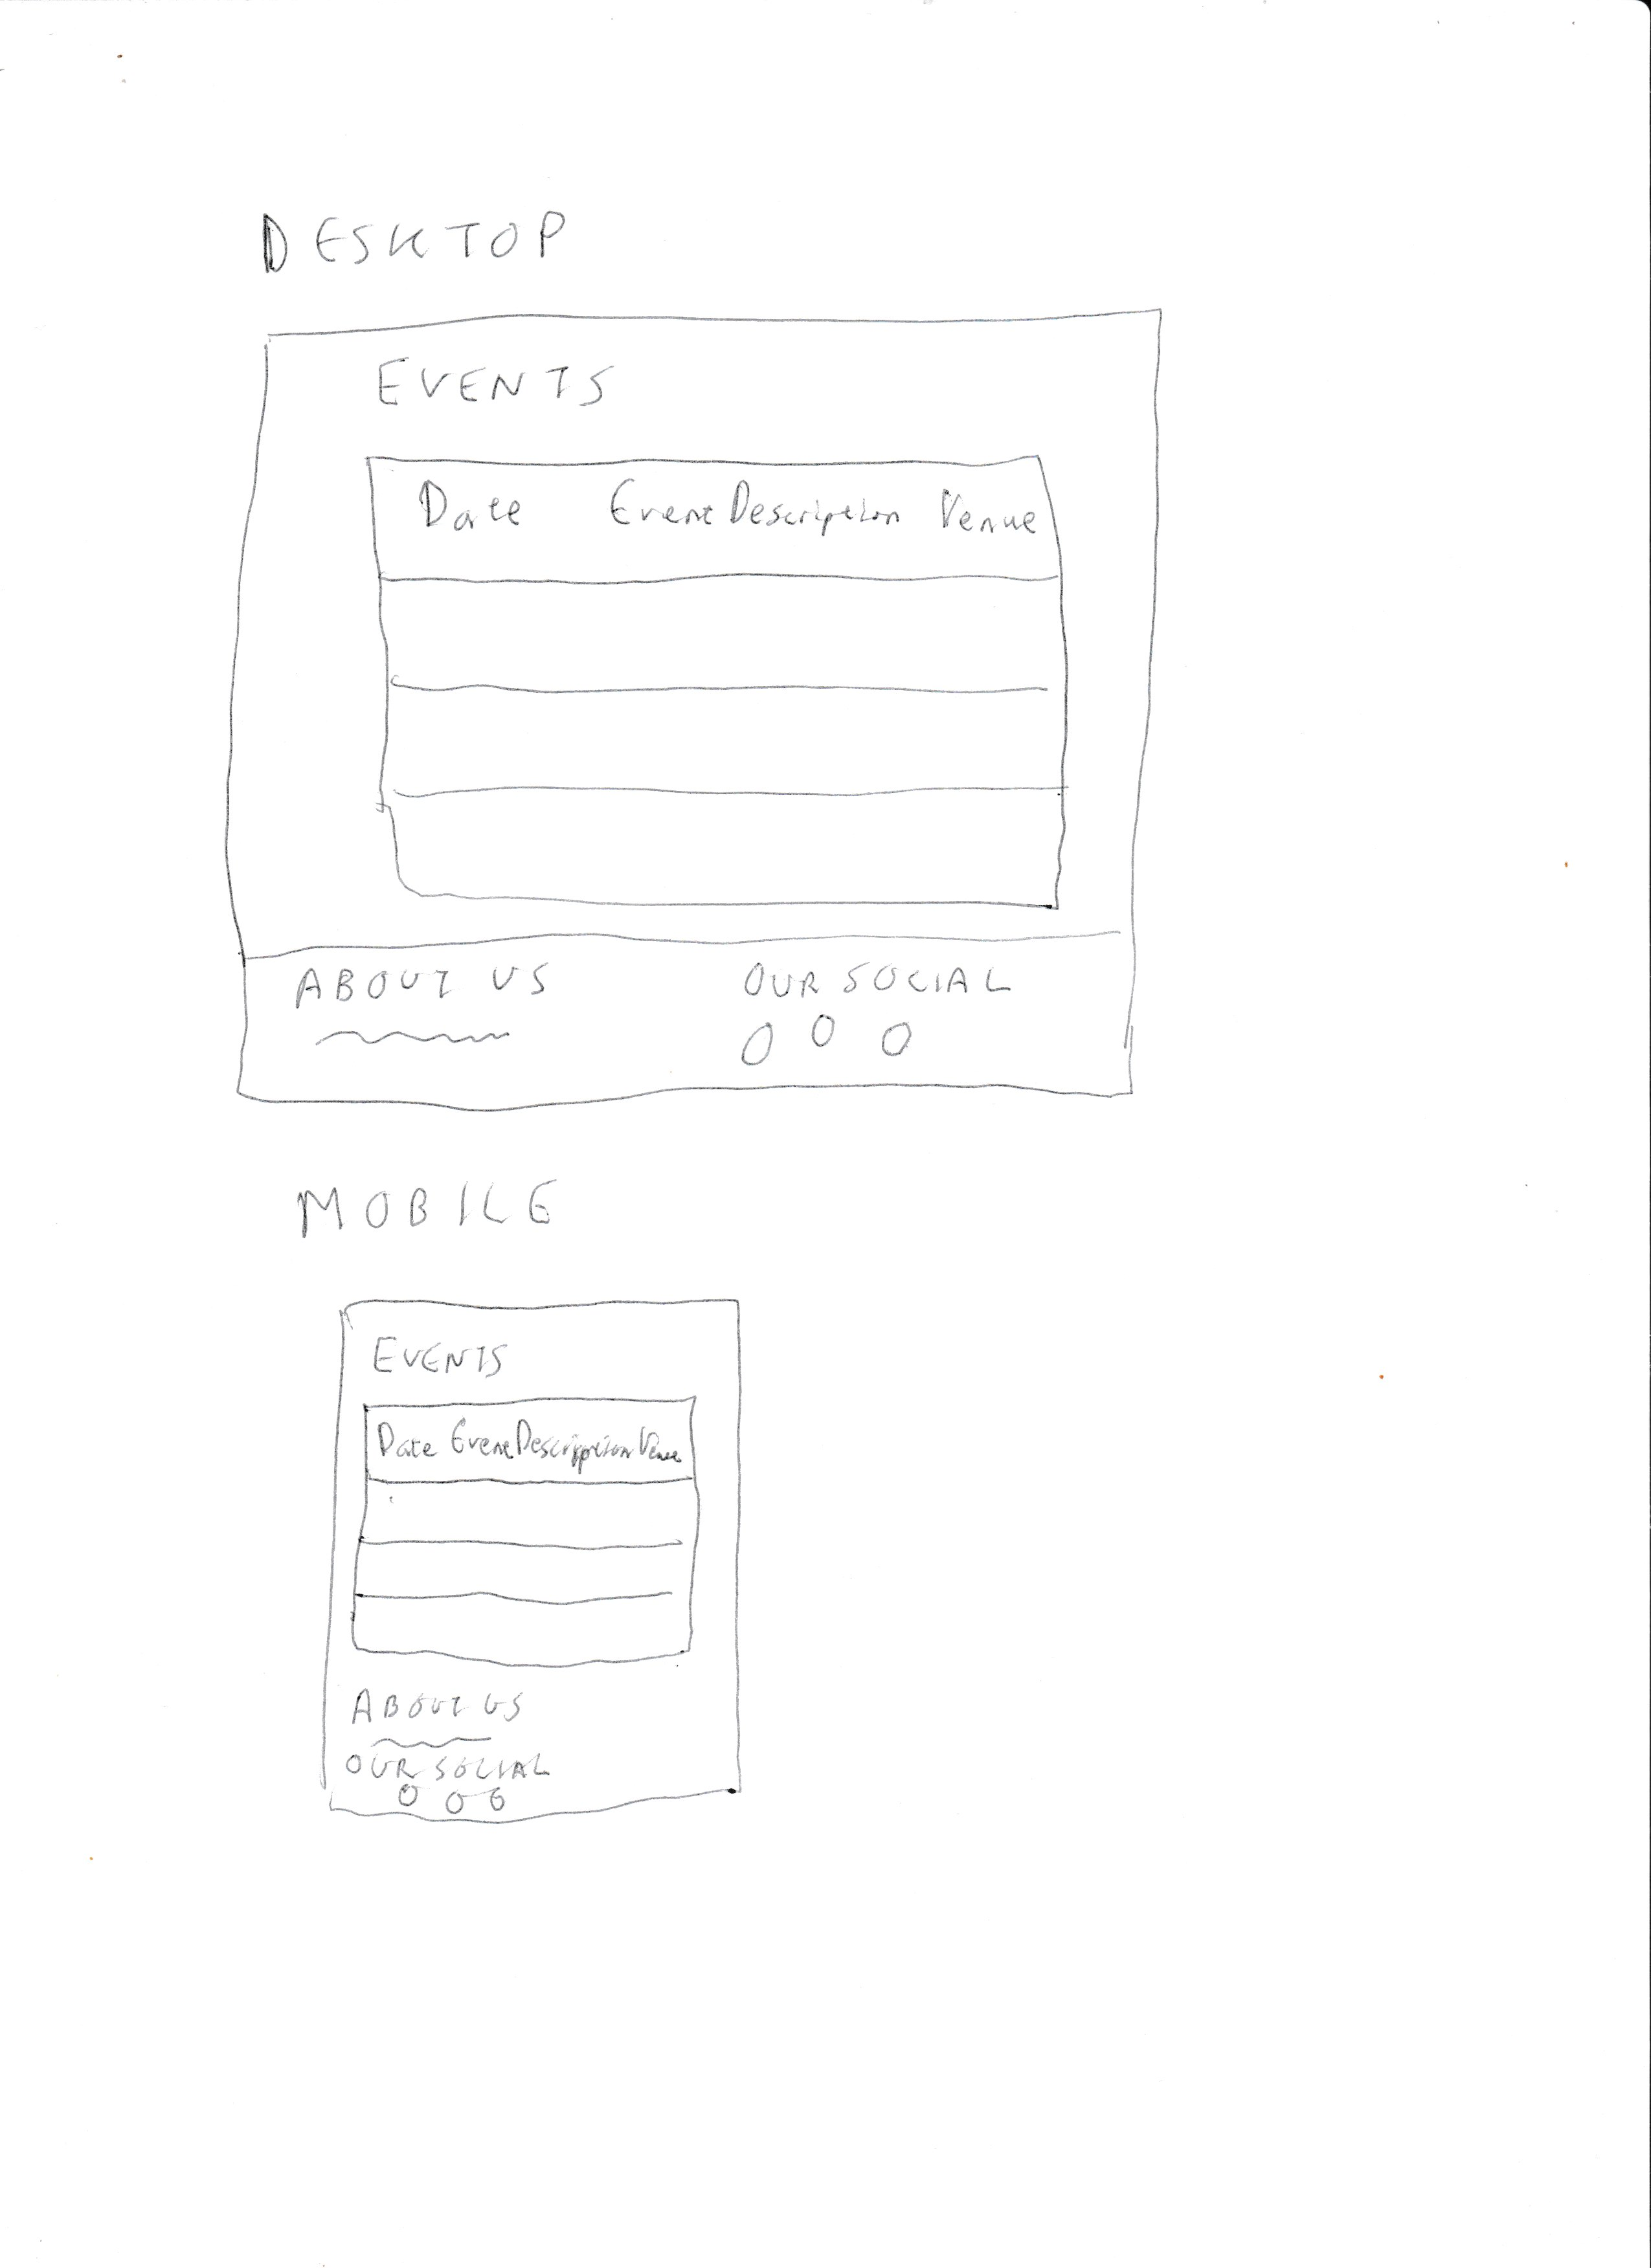 DESKTOP
EVENTS
Date Event Description Venue
ABOUT US OUR SOCIAL
MOBILE
EVENTS
Date Event Description Venue
ABOUT US
OUR SOCIAL